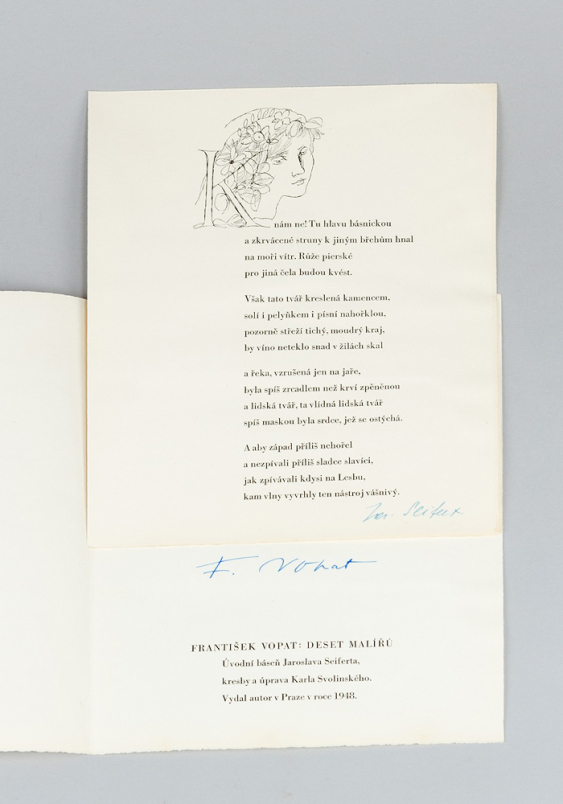 K nám ne! Tu hlavu básnickou
a zkrvácené struny k jiným břehům hnal
na moři vítr. Růže pierské
pro jiná čela budou kvést.
Však tato tvář kreslená kamencem,
solí i pelyňkem i písní nahořklou,
pozorně střeží tichý, moudrý kraj,
by víno neteklo snad v žilách skal
a řeka, vzrušená jen na jaře,
byla spíš zrcadlem než krví zpěněnou
a lidská tvář, ta vlídná lidská tvář
spíš maskou byla srdce, jež se ostýchá.
A aby západ příliš nehořel
a nezpívali příliš sladce slavíci,
jak zpívávali kdysi na Lesbu,
kam vlny vyvrhly ten nástroj vášnivý.
Jar. Seifert
F. Vopat
FRANTIŠEK VOPAT: DESET MALÍŘŮ
Úvodní báseň Jaroslava Seiferta,
kresby a úprava Karla Svolinského.
Vydal autor v Praze v roce 1948.